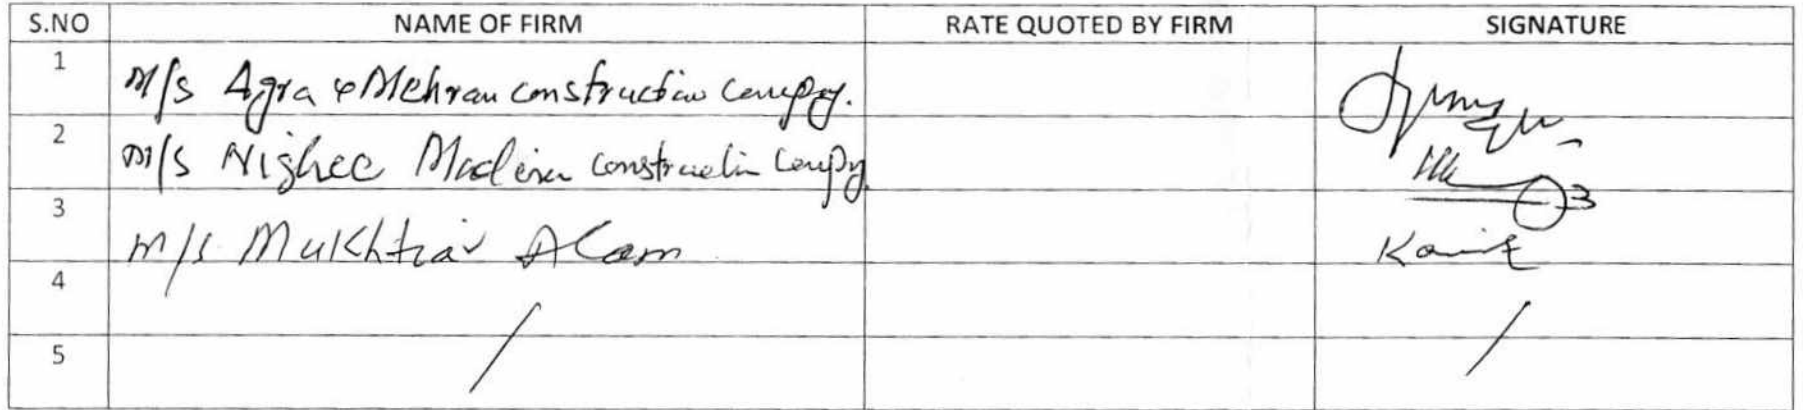 S.NO NAME OF FIRM RATE QUOTED BY FIRM SIGNATURE
1 M/s Agra & Mehran construction Compy.
2 M/s Nighee Madina construction Compy
3 M/s Mukhtiar Alam
4 /
5